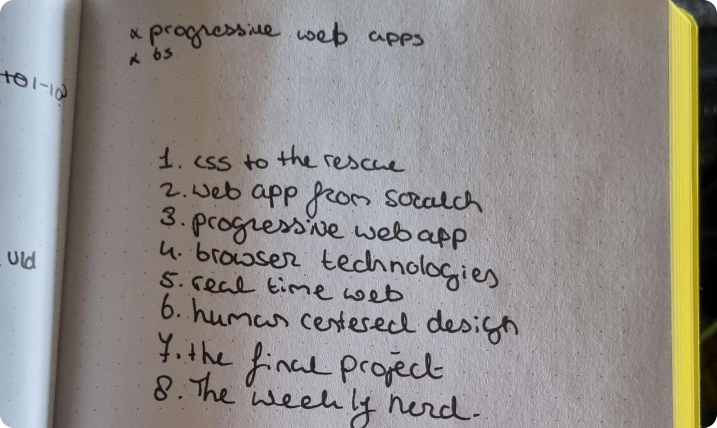 × progressive web apps
× bs
1. css to the rescue
2. web app from scratch
3. progressive web app
4. browser technologies
5. real time web
6. human centered design
7. the final project
8. The weekly nerd.